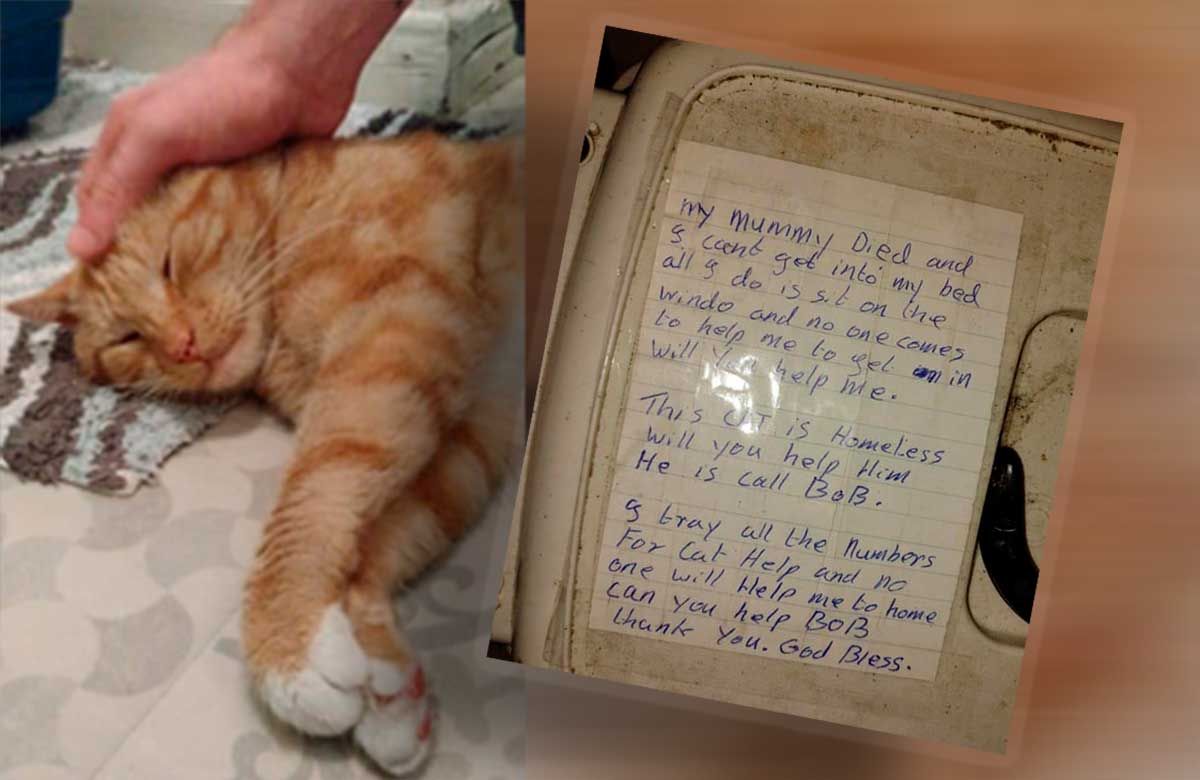 my mummy Died and
I cant get into my bed
all I do is sit on the
windo and no one comes
to help me to get in
will you help me.
This CAT is Homeless
will you help Him
He is call BoB.
I tray all the numbers
For Cat Help and no
one will Help me to home
can you help BOB
thank you. God Bless.